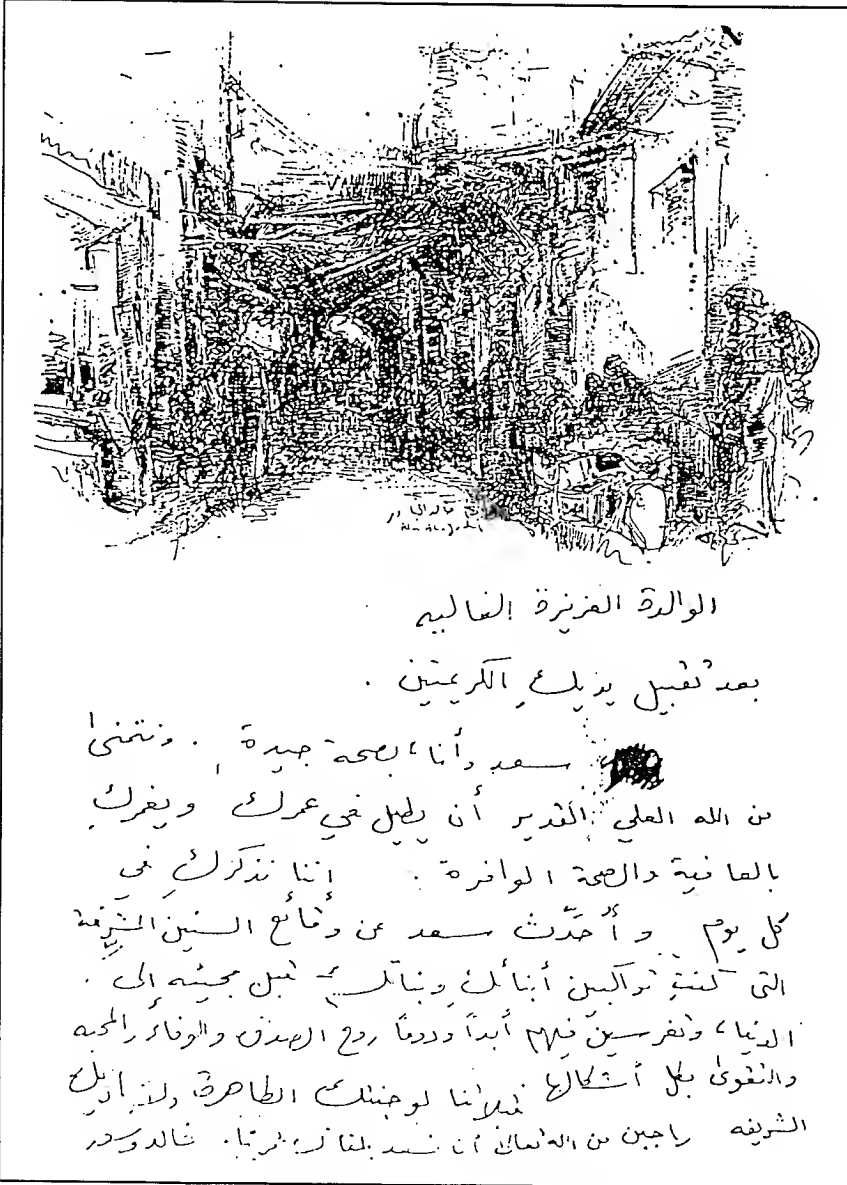 خالد الجادر
الوالدة العزيزة الغاليه
بعد تقبيل يديكِ الكريمتين .
سعد وأنا، بصحة جيدة . ونتمنى
من الله العلي القدير أن يطيل في عمرك ويغمركِ
بالعافية والصحة الوافرة . إننا نذكركِ في
كل يوم وأُحَدّث سعد عن وقائع السنين المشرّفة
التي كنتِ تواكبين أبنائكِ وبناتكِ قبل مجيئه الى
الدنيا، وتغرسين فيهم أبداً ودوماً روح الصدق والوفاء والمحبه
والتقوى بكل أشكالها قبلاتنا لوجنتك الطاهرة
الشريفه راجين من الله تعالى أن نسعد بلقائك قريباً. خالد وسعد